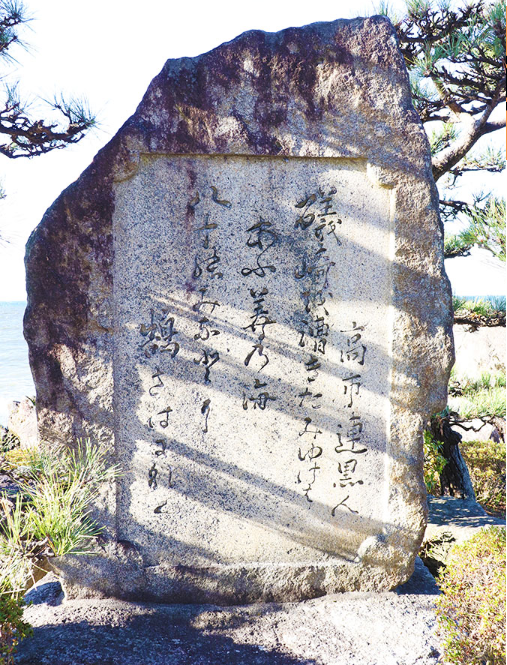 高市連黒人
磯能崎漕きたみゆけは
あふ美乃海
八十能みなと
鵠さはに